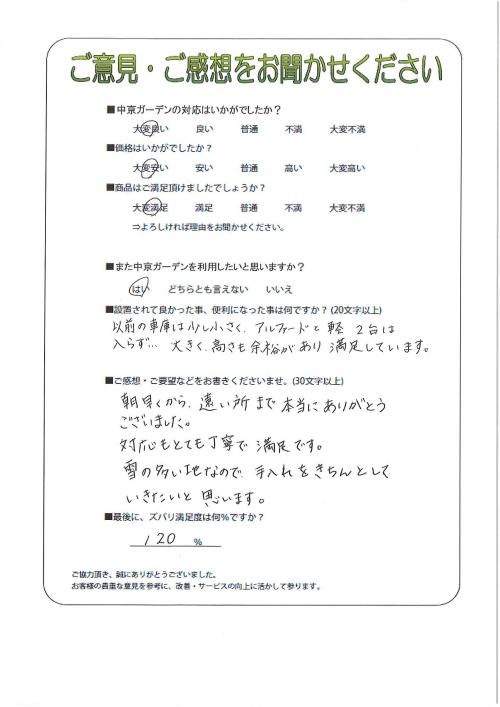 ご意見・ご感想をお聞かせください
■中京ガーデンの対応はいかがでしたか？
大変良い 良い 普通 不満 大変不満
■価格はいかがでしたか？
大変安い 安い 普通 高い 大変高い
■商品はご満足頂けましたでしょうか？
大変満足 満足 普通 不満 大変不満
⇒よろしければ理由をお聞かせください。
■また中京ガーデンを利用したいと思いますか？
はい どちらとも言えない いいえ
■設置されて良かった事、便利になった事は何ですか？(20文字以上)
以前の車庫は少し小さく、アルファードと軽 2台は
入らず… 大きく、高さも余裕があり満足しています。
■ご感想・ご要望などをお書きくださいませ。(30文字以上)
朝早くから、遠い所まで本当にありがとう
ございました。
対応もとても丁寧で満足です。
雪の多い地なので、手入れをきちんとして
いきたいと思います。
■最後に、ズバリ満足度は何％ですか？
120 %
ご協力頂き、誠にありがとうございました。
お客様の貴重な意見を参考に、改善・サービスの向上に活かして参ります。